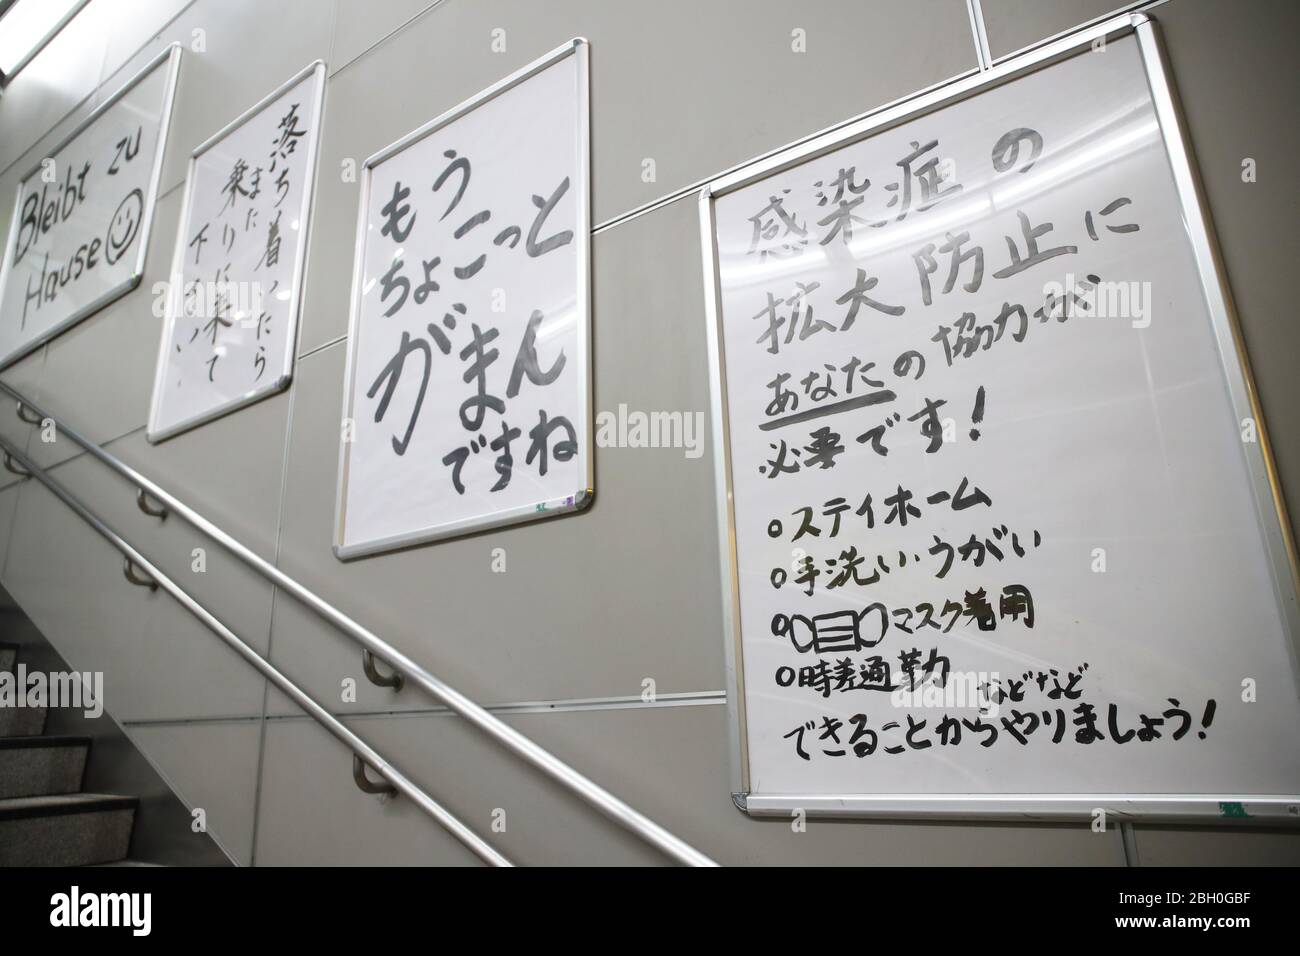 Bleibt zu
Hause
落ち着いたら
また
乗りに来て
下さい
もう
ちょこっと
がまん
ですね
感染症の
拡大防止に
あなたの協力が
必要です!
○ステイホーム
○手洗いうがい
○マスク着用
○時差通勤
などなど
できることからやりましょう!
alamy
Image ID: 2BH0GBF
www.alamy.com